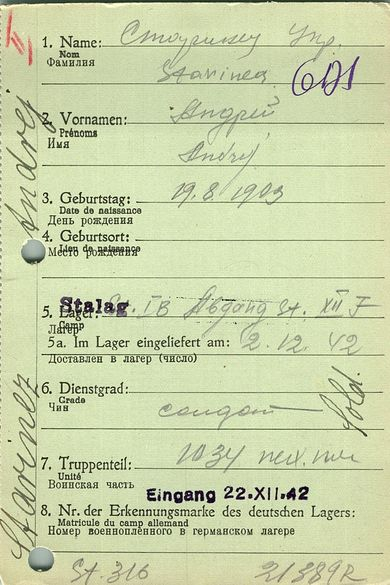 1. Name:
Nom
Фамилия
Starinez
2. Vornamen: Андрей
Prénoms
Имя
Andrej
3. Geburtstag: 19.8.1903
Date de naissance
День рождения
4. Geburtsort:
Lieu de naissance
Место рождения
Stalag
5. Lager: St. IB Abgang St. XII F
Camp
Лагерь
5a. Im Lager eingeliefert am: 2.12.42
Доставлен в лагерь (число)
6. Dienstgrad:
Grade
Чин солдат Sold.
7. Truppenteil: 1034
Unité
Воинская часть
Eingang 22.XII.42
8. Nr. der Erkennungsmarke des deutschen Lagers:
Matricule du camp allemand
Номер военноплённого в германском лагере
St. 316
Starinez Andrej